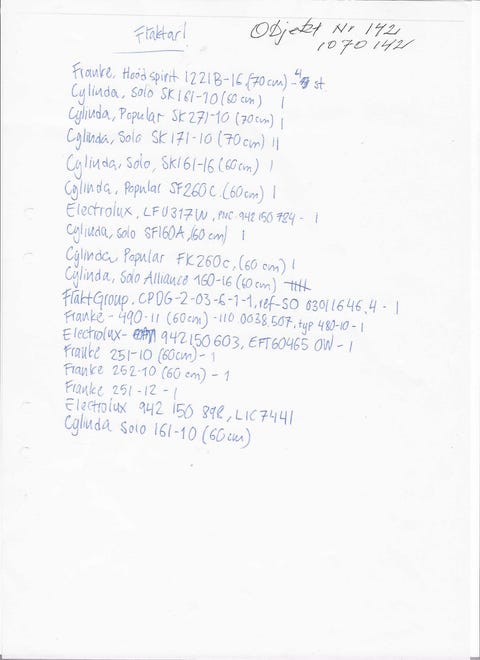 Fläktar!
Objekt Nr 142
1070142
Franke, Hood spirit 1221B-16 (70cm) - 4 st.
Cylinda, Solo SK161-10 (60 cm) |
Cylinda, Popular SK271-10 (70cm) |
Cylinda, Solo SK171-10 (70cm) ||
Cylinda, Solo, SK161-16 (60cm) |
Cylinda, Popular SF260C (60cm) |
Electrolux, LFU317W, PNC 942 150 784 - 1
Cylinda, Solo SF160A, (60 cm) |
Cylinda Popular FK260C, (60 cm) |
Cylinda, Solo Alliance 160-16 (60 cm) ||||
FläktGroup, CPDG-2-03-6-1-1, ref-SO 03011646.4 - 1
Franke - 490-11 (60cm) - 110 0038.507, typ 480-10 - 1
Electrolux - 942150603, EFT60465 OW - 1
Franke 251-10 (60cm) - 1
Franke 252-10 (60 cm) - 1
Franke 251-12 - 1
Electrolux 942 150 898, LIC7441
Cylinda Solo 161-10 (60cm)